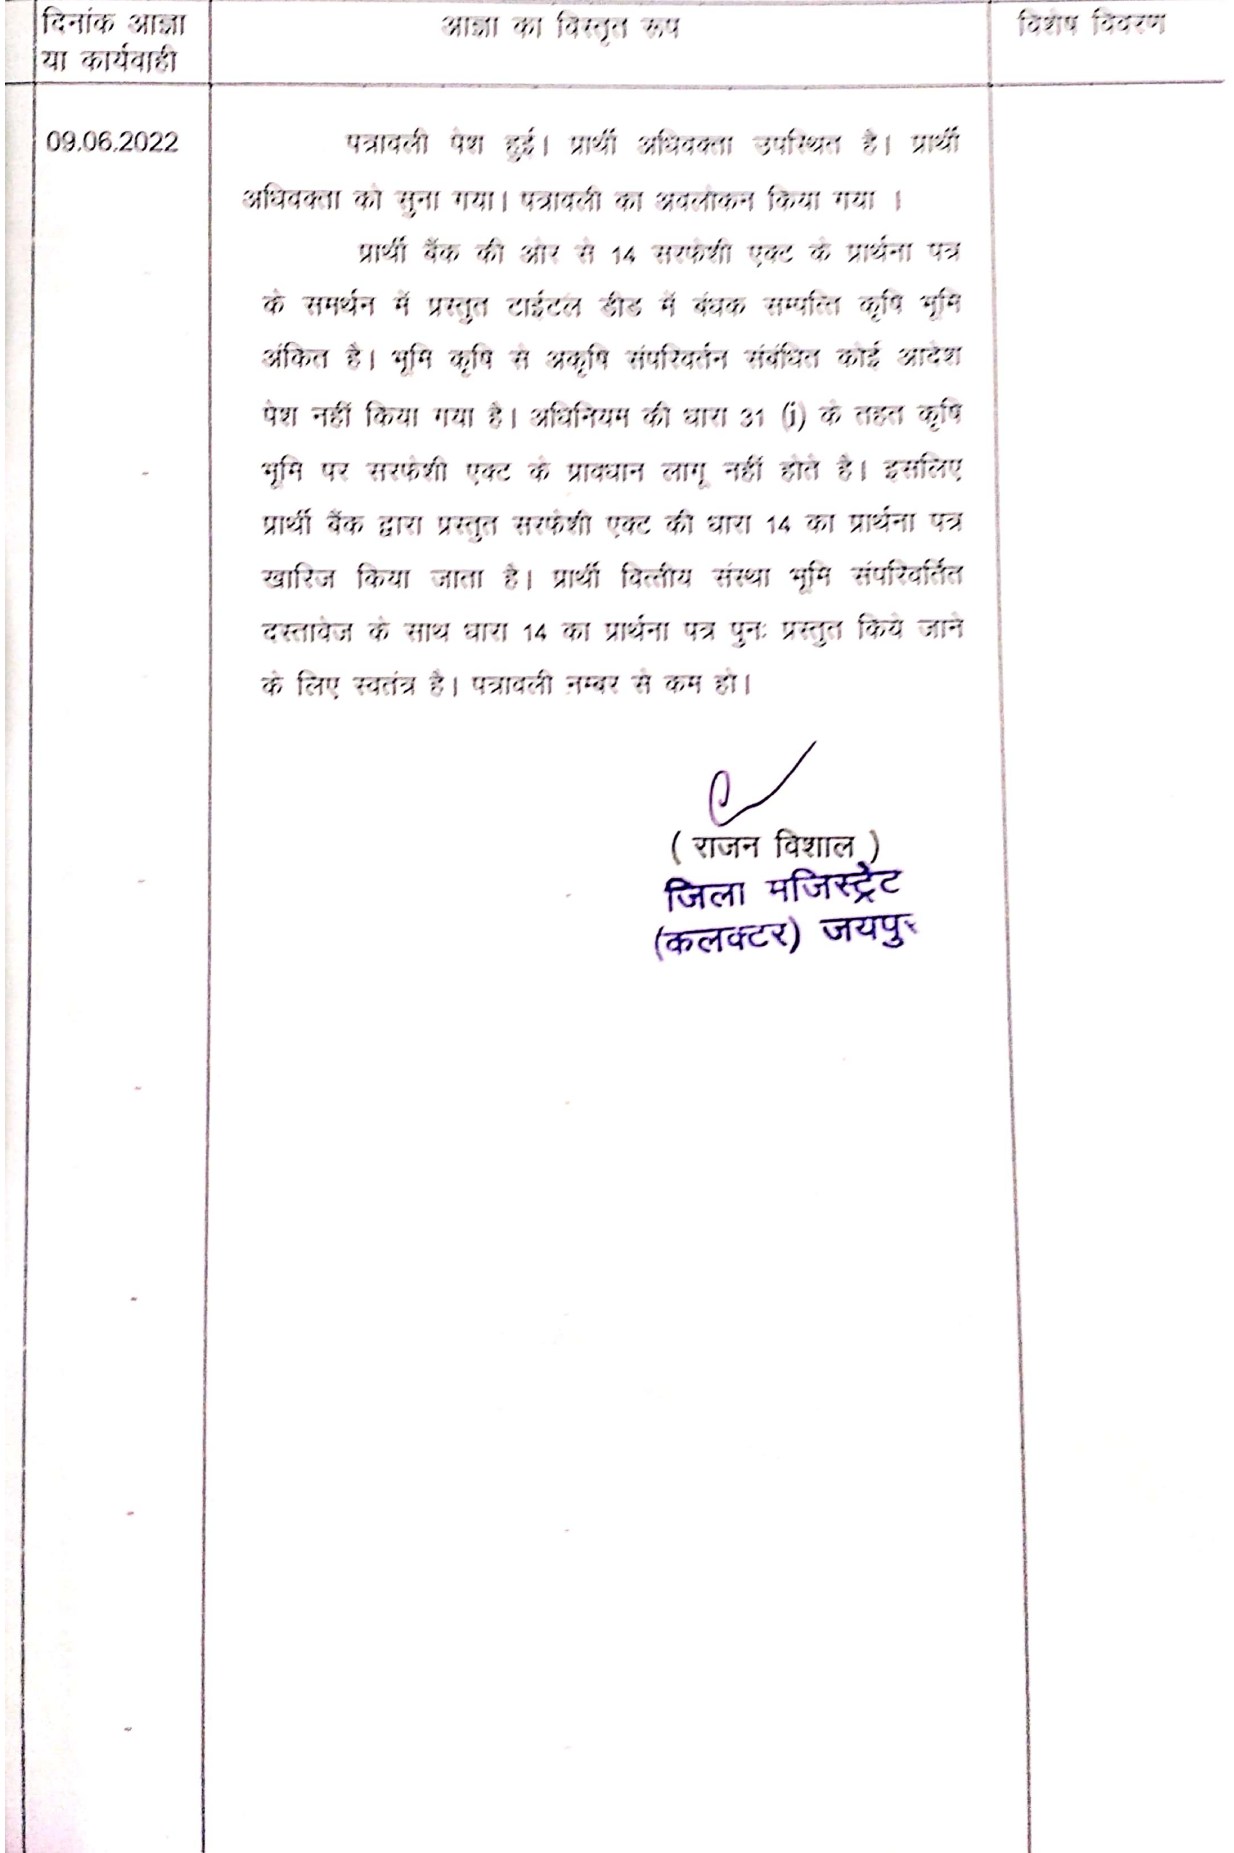 दिनांक आज्ञा
या कार्यवाही
आज्ञा का विस्तृत रूप
विशेष विवरण
09.06.2022
पत्रावली पेश हुई। प्रार्थी अधिवक्ता उपस्थित है। प्रार्थी
अधिवक्ता को सुना गया। पत्रावली का अवलोकन किया गया ।
प्रार्थी बैंक की ओर से 14 सरफेशी एक्ट के प्रार्थना पत्र
के समर्थन में प्रस्तुत टाईटल डीड में बंधक सम्पत्ति कृषि भूमि
अंकित है। भूमि कृषि से अकृषि संपरिवर्तन संबंधित कोई आदेश
पेश नहीं किया गया है। अधिनियम की धारा 31 (i) के तहत कृषि
भूमि पर सरफेशी एक्ट के प्रावधान लागू नहीं होते है। इसलिए
प्रार्थी बैंक द्वारा प्रस्तुत सरफेशी एक्ट की धारा 14 का प्रार्थना पत्र
खारिज किया जाता है। प्रार्थी वित्तीय संस्था भूमि संपरिवर्तित
दस्तावेज के साथ धारा 14 का प्रार्थना पत्र पुनः प्रस्तुत किये जाने
के लिए स्वतंत्र है। पत्रावली नम्बर से कम हो।
( राजन विशाल )
जिला मजिस्ट्रेट
(कलक्टर) जयपुर